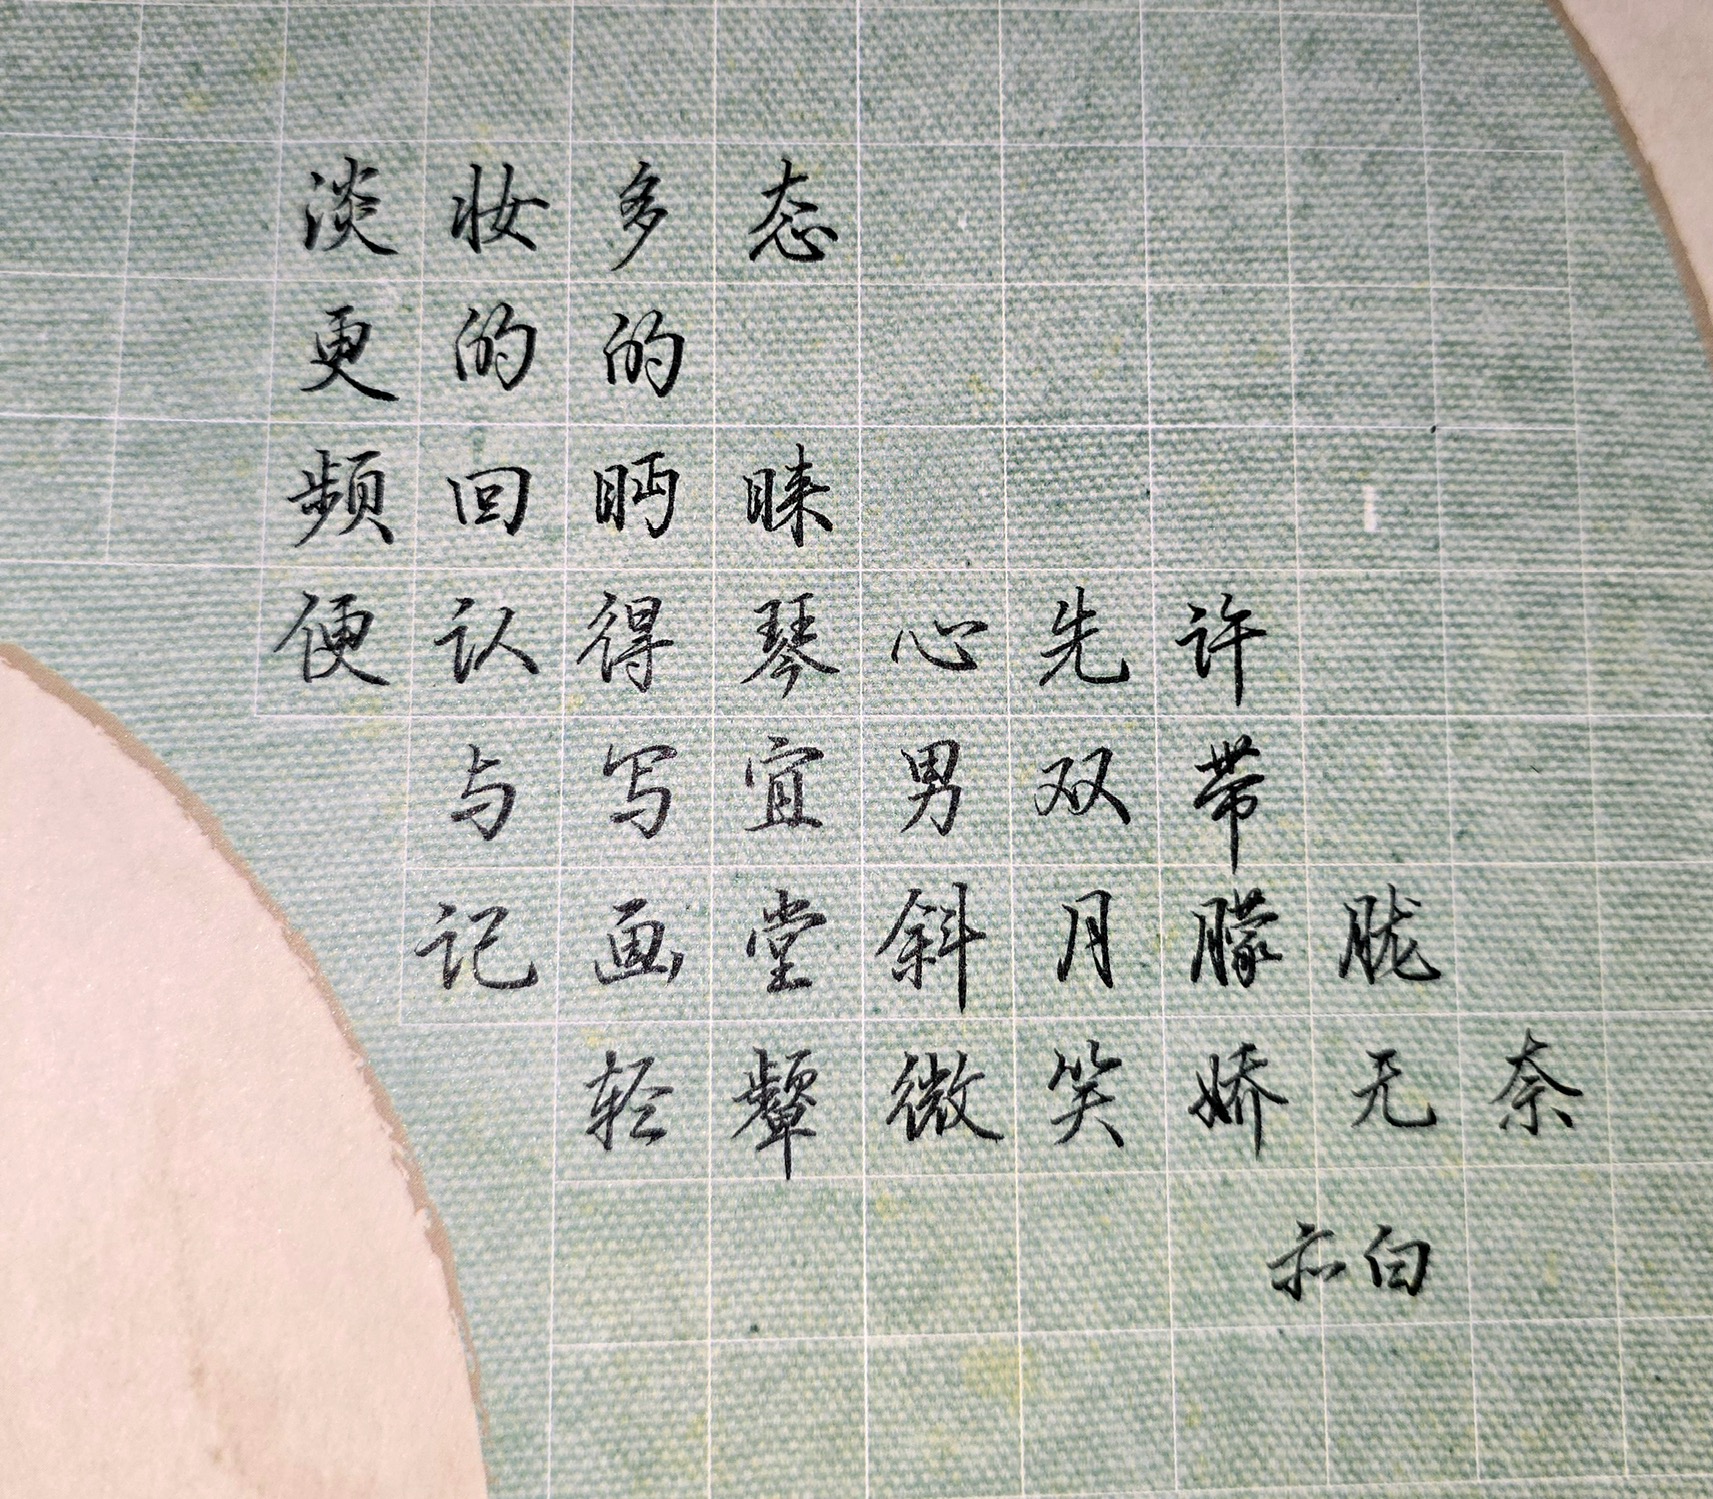 淡妆多态
更的的
频回眄睐
便认得琴心先许
与写宜男双带
记画堂斜月朦胧
轻颦微笑娇无奈
白